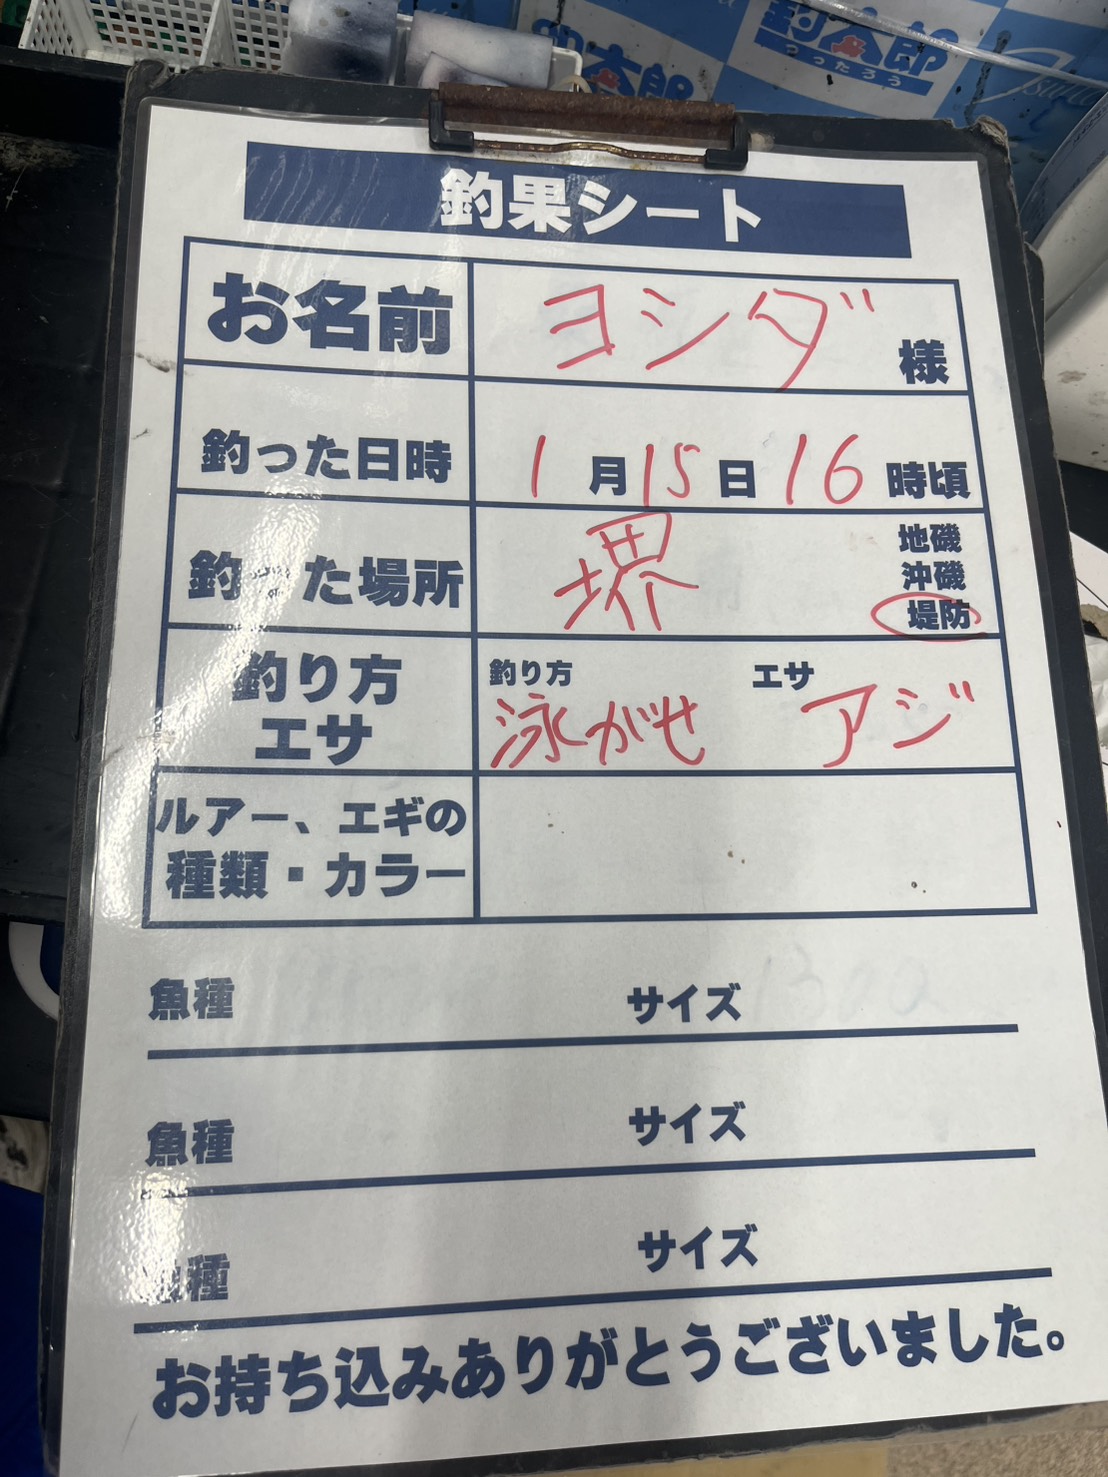 釣太郎
つったろう
釣果シート
お名前 ヨシダ 様
釣った日時 1月15日16時頃
釣った場所 堺 地磯
沖磯
堤防
釣り方 釣り方 エサ
エサ 泳がせ アジ
ルアー、エギの
種類・カラー
魚種 サイズ
魚種 サイズ
種 サイズ
お持ち込みありがとうございました。